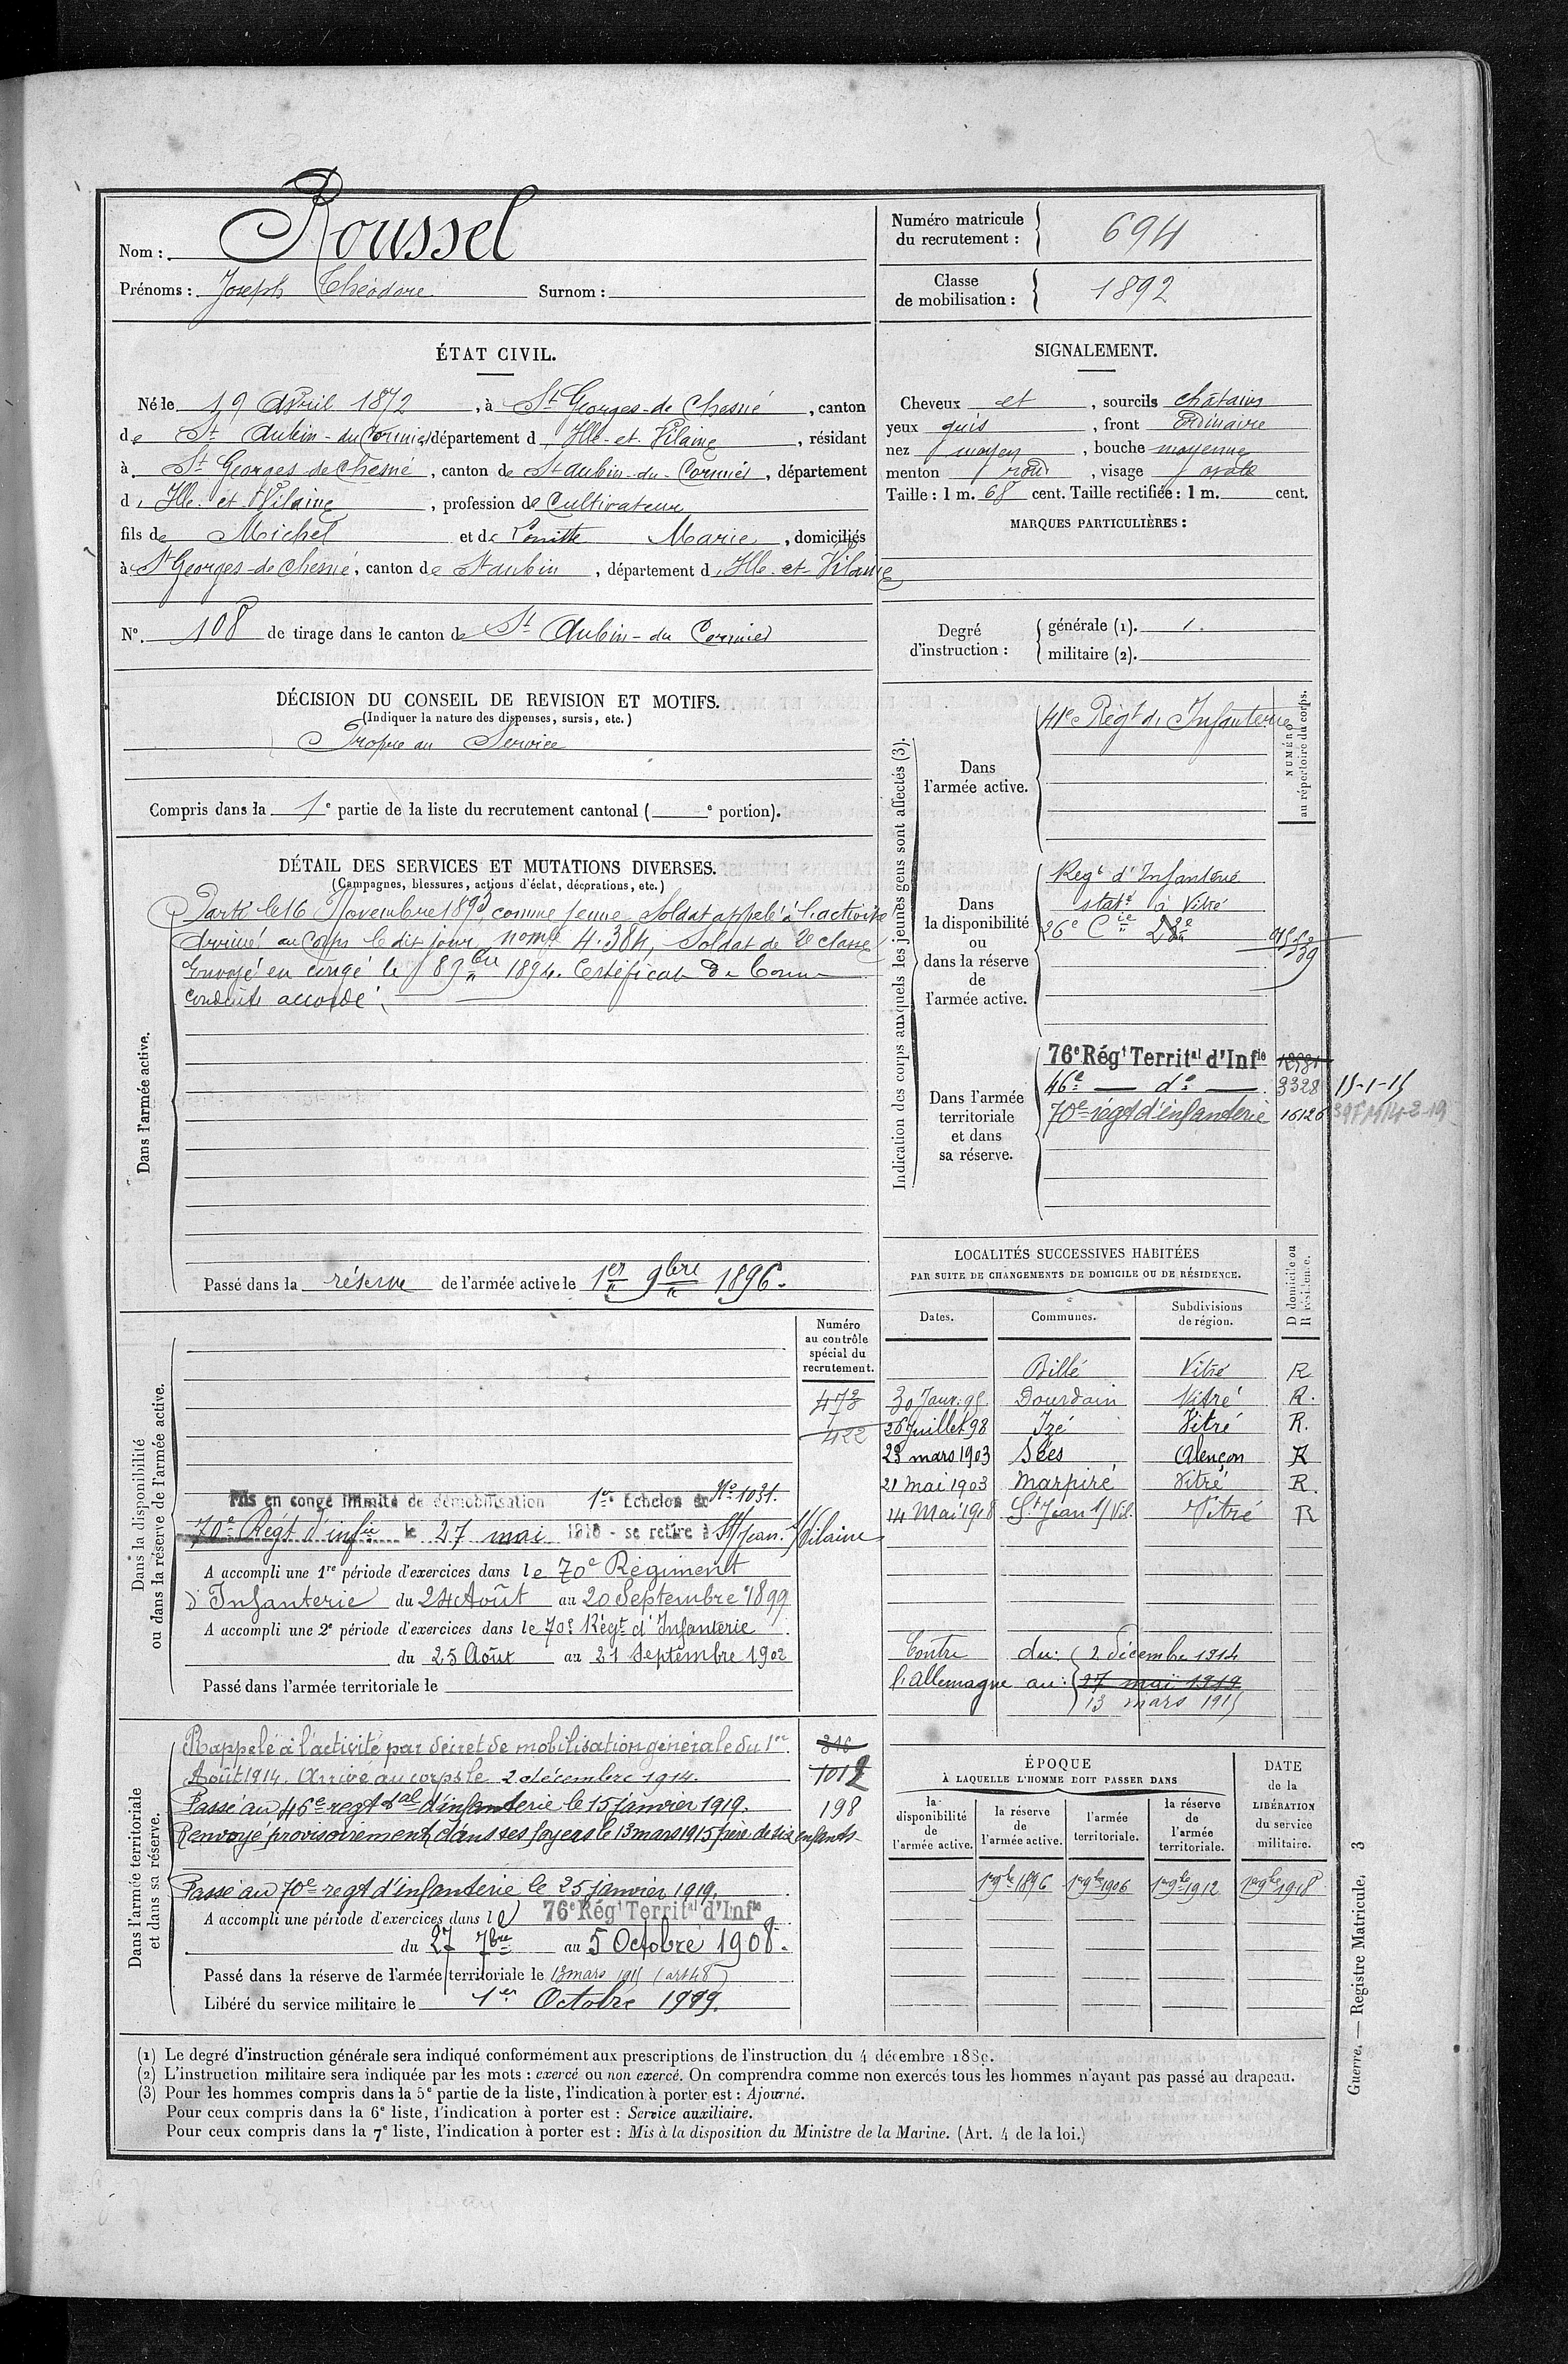 Nom : Roussel
Prénoms : Joseph Théodore Surnom :
Numéro matricule du recrutement : 694
Classe de mobilisation : 1892
ÉTAT CIVIL.
Né le 19 Avril 1872, à St Georges-de Chesné, canton
de St Aubin-du Cormier département d Ille-et-Vilaine, résidant
à St Georges de Chesné, canton de St aubin-du-Cormier, département
d Ille et Vilaine, profession de Cultivateur
fils de Michel et de Marie, domiciliés
à St Georges-de Chesné, canton de St aubin, département d Ille-et-Vilaine
No. 108 de tirage dans le canton de St Aubin-du Cormier
SIGNALEMENT.
Cheveux et, sourcils châtains
yeux gris, front Ordinaire
nez moyen, bouche moyenne
menton rond, visage ovale
Taille : 1 m. 68 cent. Taille rectifiée : 1 m. cent.
MARQUES PARTICULIÈRES :
Degré d'instruction : générale (1). 1.
militaire (2).
DÉCISION DU CONSEIL DE REVISION ET MOTIFS.
(Indiquer la nature des dispenses, sursis, etc.)
Propre au Service
Compris dans la 1e partie de la liste du recrutement cantonal ( e portion).
DÉTAIL DES SERVICES ET MUTATIONS DIVERSES.
(Campagnes, blessures, actions d'éclat, décorations, etc.)
Dans l'armée active.
Parti le 16 Novembre 1893 comme jeune Soldat appelé à l'activité
Arrivé au Corps le dit jour, nomé 4.384, Soldat de 2e classe
Envoyé en congé le 1894. Certificat De bonne
conduite accordé.
Passé dans la réserve de l'armée active le 1er 9bre 1896.
Indication des corps auxquels les jeunes gens sont affectés (3).
NUMÉRO au répertoire du corps.
Dans l'armée active.
41e Régt d'Infanterie
Dans la disponibilité ou dans la réserve de l'armée active.
Regt d'Infanterie
staté à Vitré
26e Cie
Dans l'armée territoriale et dans sa réserve.
76e Régt Territal d'Infie
46e — do — 3328 15-1-15
70e régt d'infanterie 16126
LOCALITÉS SUCCESSIVES HABITÉES
PAR SUITE DE CHANGEMENTS DE DOMICILE OU DE RÉSIDENCE.
Dates. Communes. Subdivisions de région. D domicile ou R résidence.
Billé Vitré R
30 Janv. 95 Dourdain Vitré R.
26 Juillet 98 Izé Vitré R.
23 mars 1903 Sées Alençon R
21 mai 1903 Marpiré Vitré R.
14 Mai 1918 St Jean s/ Vil. Vitré R
Contre du : 2 décembre 1914
l'allemagne au : 27 mai 1919
13 mars 1915
Dans la disponibilité ou dans la réserve de l'armée active.
Numéro au contrôle spécial du recrutement.
473
422
Mis en congé illimité de démobilisation 1er Échelon No 1031.
70e Régt d'infie le 27 mai 1919 - se retire à St Jean s/ Vilaine
A accompli une 1re période d'exercices dans le 70e Régiment
d'Infanterie du 24 Août au 20 Septembre 1899
A accompli une 2e période d'exercices dans le 70e Régt d'Infanterie
du 25 Août au 21 Septembre 1902
Passé dans l'armée territoriale le
Dans l'armée territoriale et dans sa réserve.
Rappelé à l'activité par décret de mobilisation générale du 1er
Août 1914. Arrivé au corps le 2 décembre 1914. 1012
Passé au 46e regt tal d'infanterie le 15 janvier 1919. 198
Renvoyé provisoirement dans ses foyers le 13 mars 1915 père de six enfants
Passé au 70e regt d'infanterie le 25 janvier 1919.
A accompli une période d'exercices dans le 76e Régt Territal d'Infie
du 27 7bre au 5 Octobre 1908.
Passé dans la réserve de l'armée territoriale le 13 mars 1915 (art 48)
Libéré du service militaire le 1er Octobre 1919.
ÉPOQUE
À LAQUELLE L'HOMME DOIT PASSER DANS
la disponibilité de l'armée active. la réserve de l'armée active. l'armée territoriale. la réserve de l'armée territoriale. DATE de la LIBÉRATION du service militaire.
1er 9bre 1896 1er 9bre 1906 1er 9bre 1912 1er 9bre 1918
(1) Le degré d'instruction générale sera indiqué conformément aux prescriptions de l'instruction du 4 décembre 1889.
(2) L'instruction militaire sera indiquée par les mots : exercé ou non exercé. On comprendra comme non exercés tous les hommes n'ayant pas passé au drapeau.
(3) Pour les hommes compris dans la 5e partie de la liste, l'indication à porter est : Ajourné.
Pour ceux compris dans la 6e liste, l'indication à porter est : Service auxiliaire.
Pour ceux compris dans la 7e liste, l'indication à porter est : Mis à la disposition du Ministre de la Marine. (Art. 4 de la loi.)
Guerre. — Registre Matricule. 3